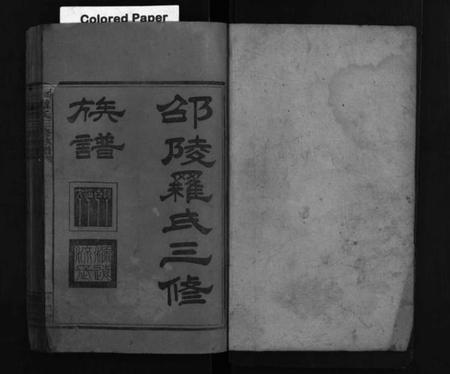 Colored Paper
邵陵羅氏三修
族譜